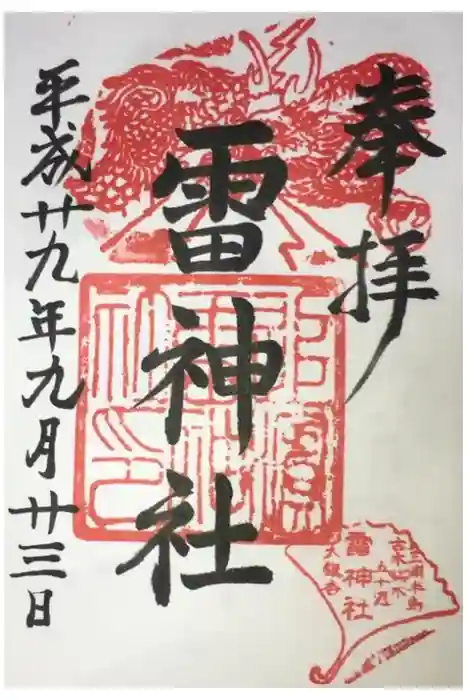 奉拝
雷神社
平成廿九年九月廿三日
雷神社